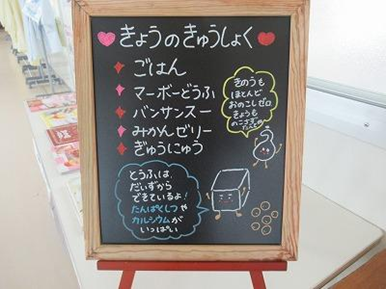 きょうのきゅうしょく
ごはん
マーボーどうふ
バンサンスー
みかんゼリー
ぎゅうにゅう
きのうも
ほとんど
おのこしゼロ
きょうも
とうふは、
だいずから
できているよ!
たんぱくしつや
カルシウムが
いっぱい